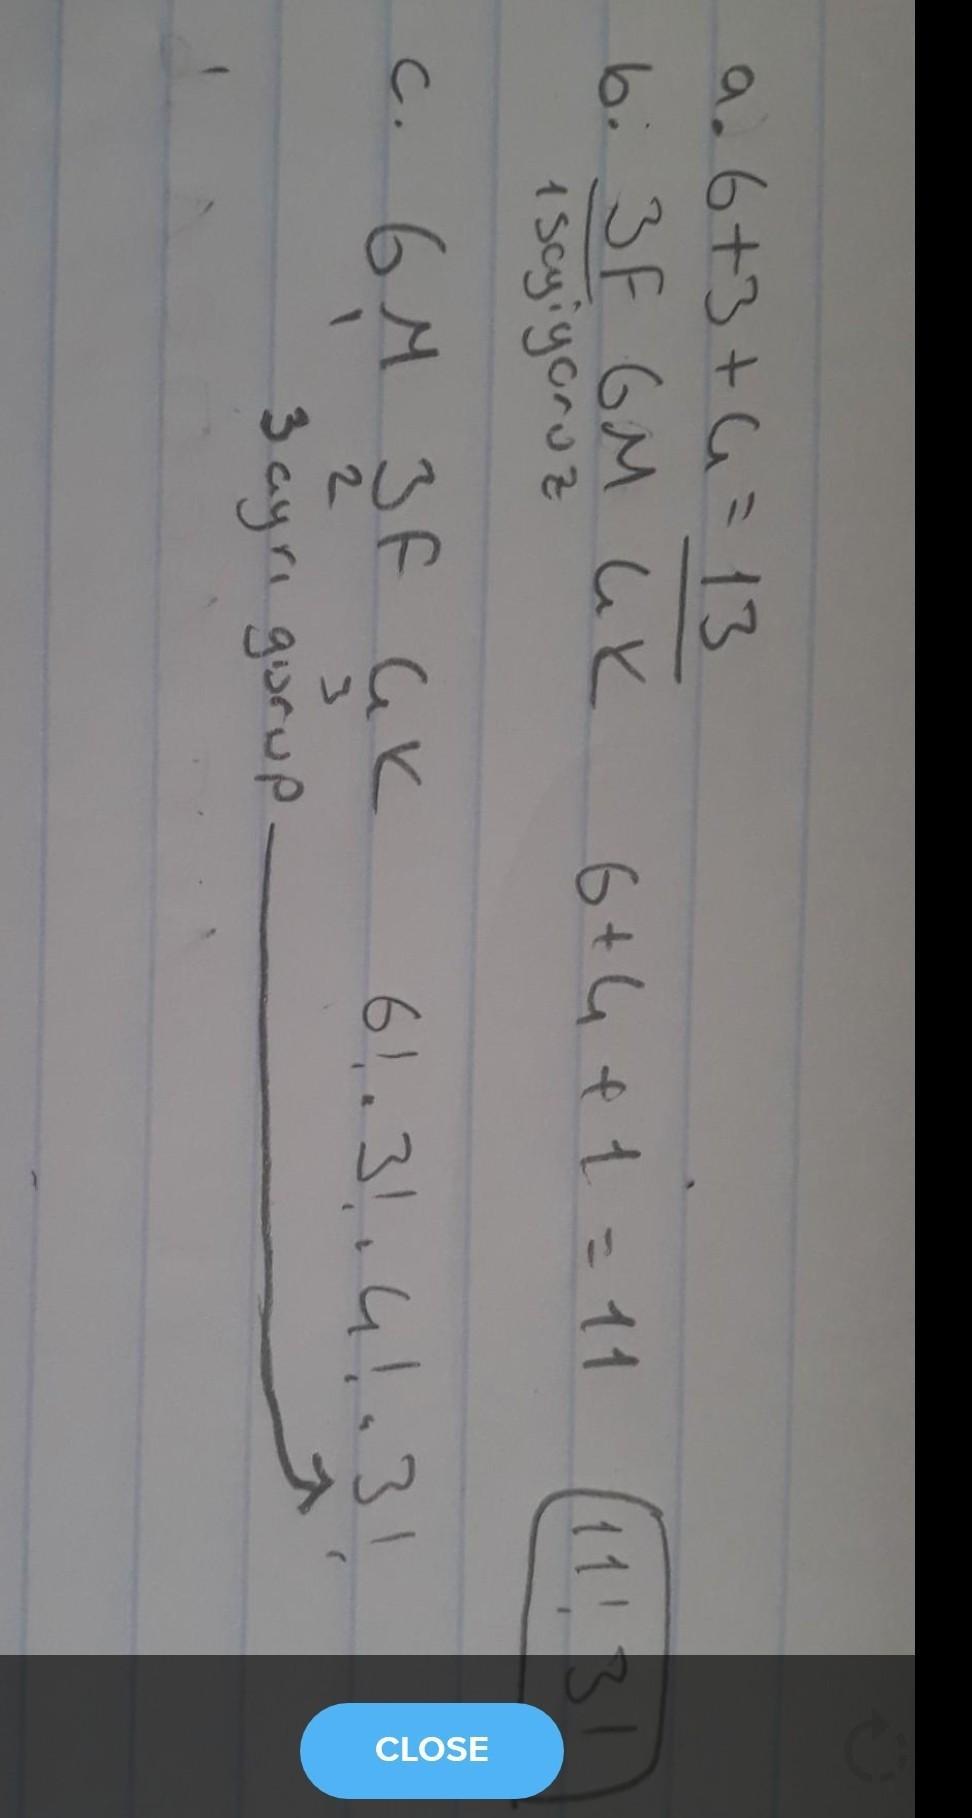 a. 6+3+4=13
b. 3F 6M 4K 6+4+1=11 11! 3!
1 sayıyoruz
c. 6M 3F 4K 6!.3!.4!.3!
1 2 3
3 ayrı gurup
CLOSE